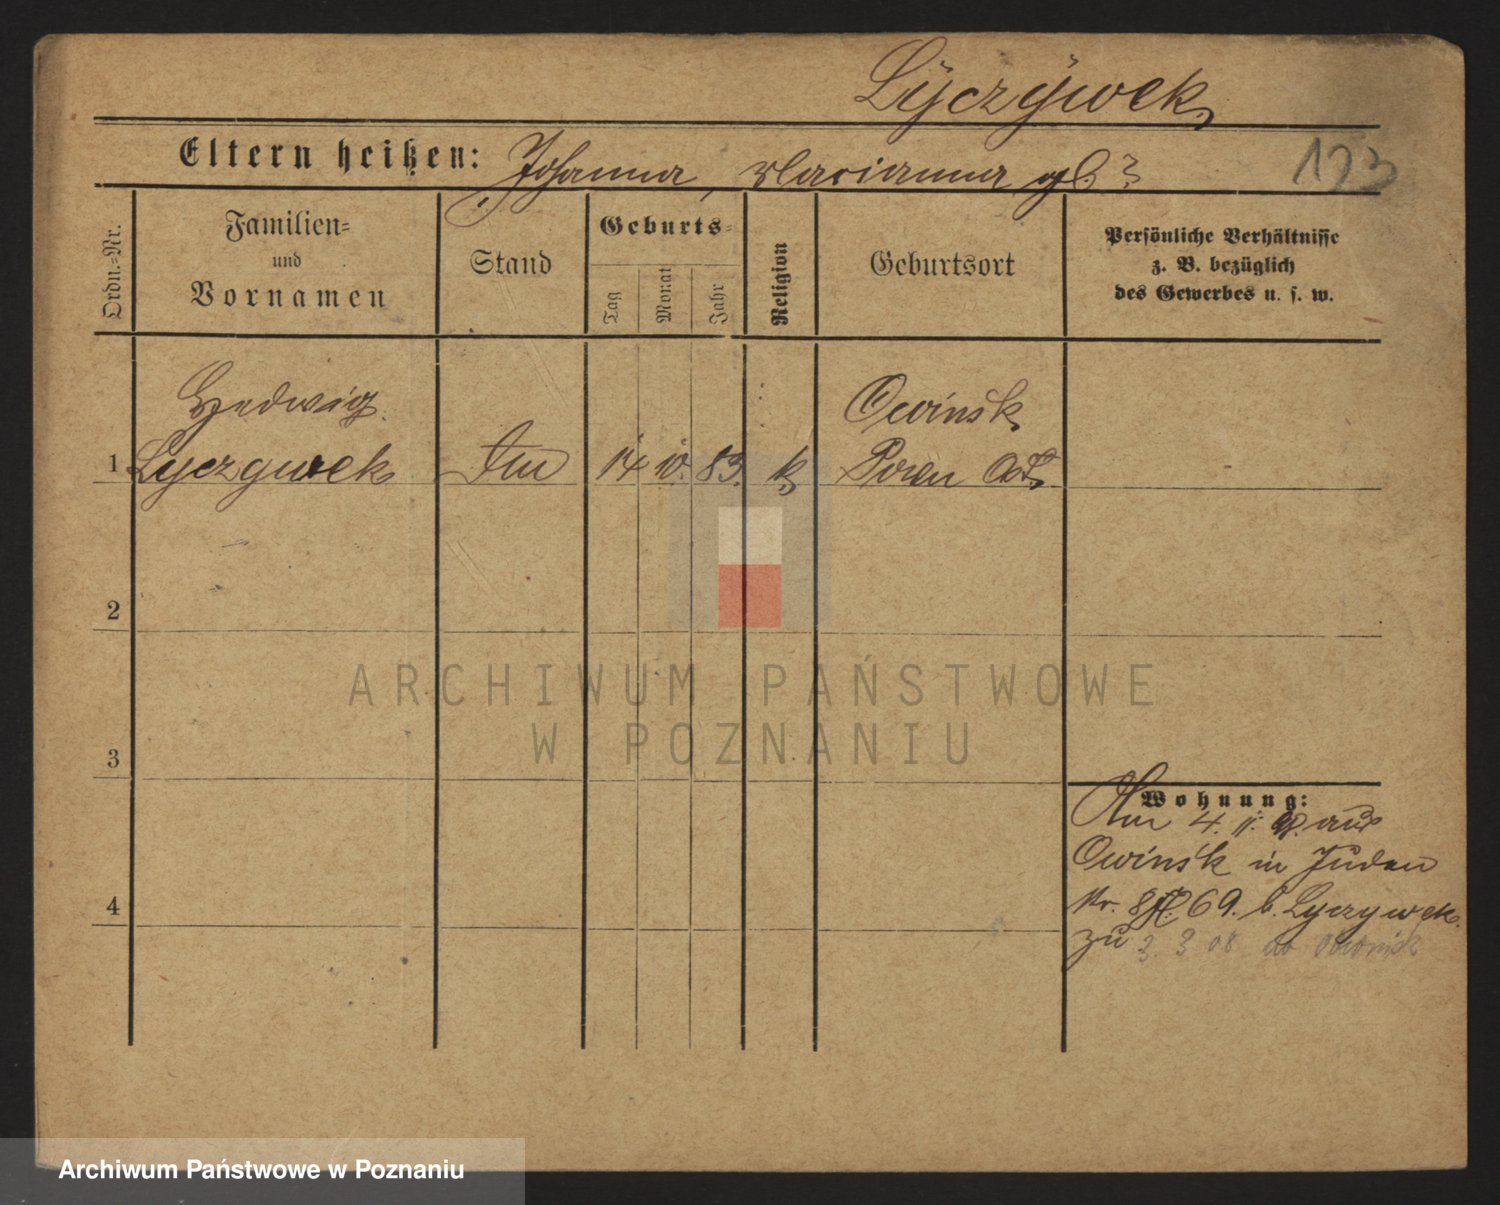 Lyczywek
Eltern heißen: Johann, Marianna gb ?
123
Ordn.-Nr.
Familien-
und
Vornamen
Stand
Geburts-
Tag
Monat
Jahr
Religion
Geburtsort
Persönliche Verhältnisse
z. B. bezüglich
des Gewerbes u. s. w.
Hedwig
Owinsk
1 Lyczywek 14 10. 83. k Posen Ost
2
ARCHIWUM PAŃSTWOWE
W POZNANIU
3
Wohnung:
4. 11. aus
Owinsk in Juden
4
Str. 69. b. Lyczywek
zu 3. 3 08
Archiwum Państwowe w Poznaniu